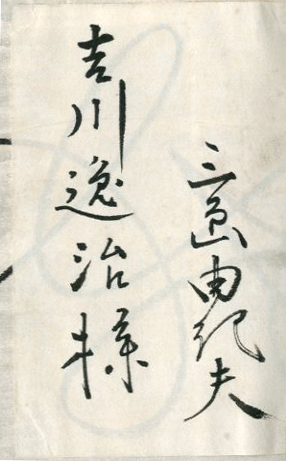 三島由紀夫
吉川逸治様